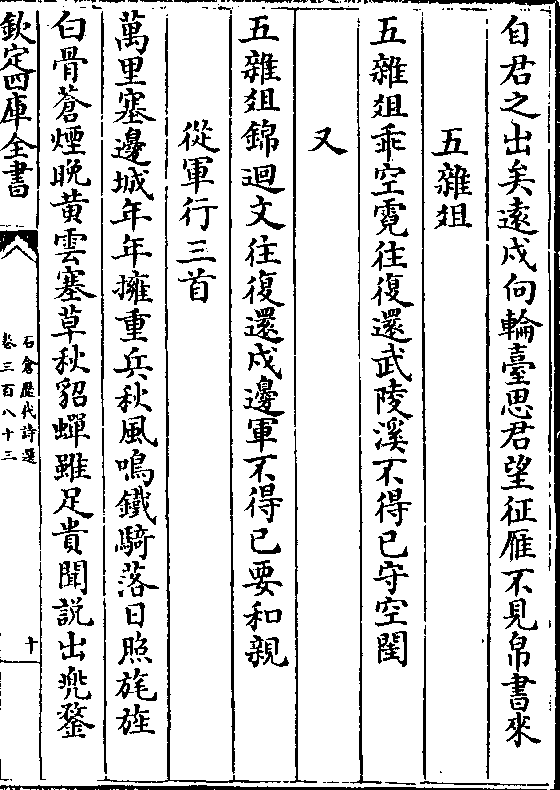 自君之出矣遠戍向輪臺思君望征雁不見帛書來
五雜俎
五雜俎乖空霓往復還武陵溪不得已守空閨
又
五雜俎錦迴文往復還戍邊軍不得已要和親
從軍行三首
萬里塞邊城年年擁重兵秋風鳴鐵騎落日照旄旌
白骨蒼煙晚黄雲塞草秋貂蟬雖足貴聞説出兜鍪
欽定四庫全書
石倉歴代詩選
卷三百八十三
十